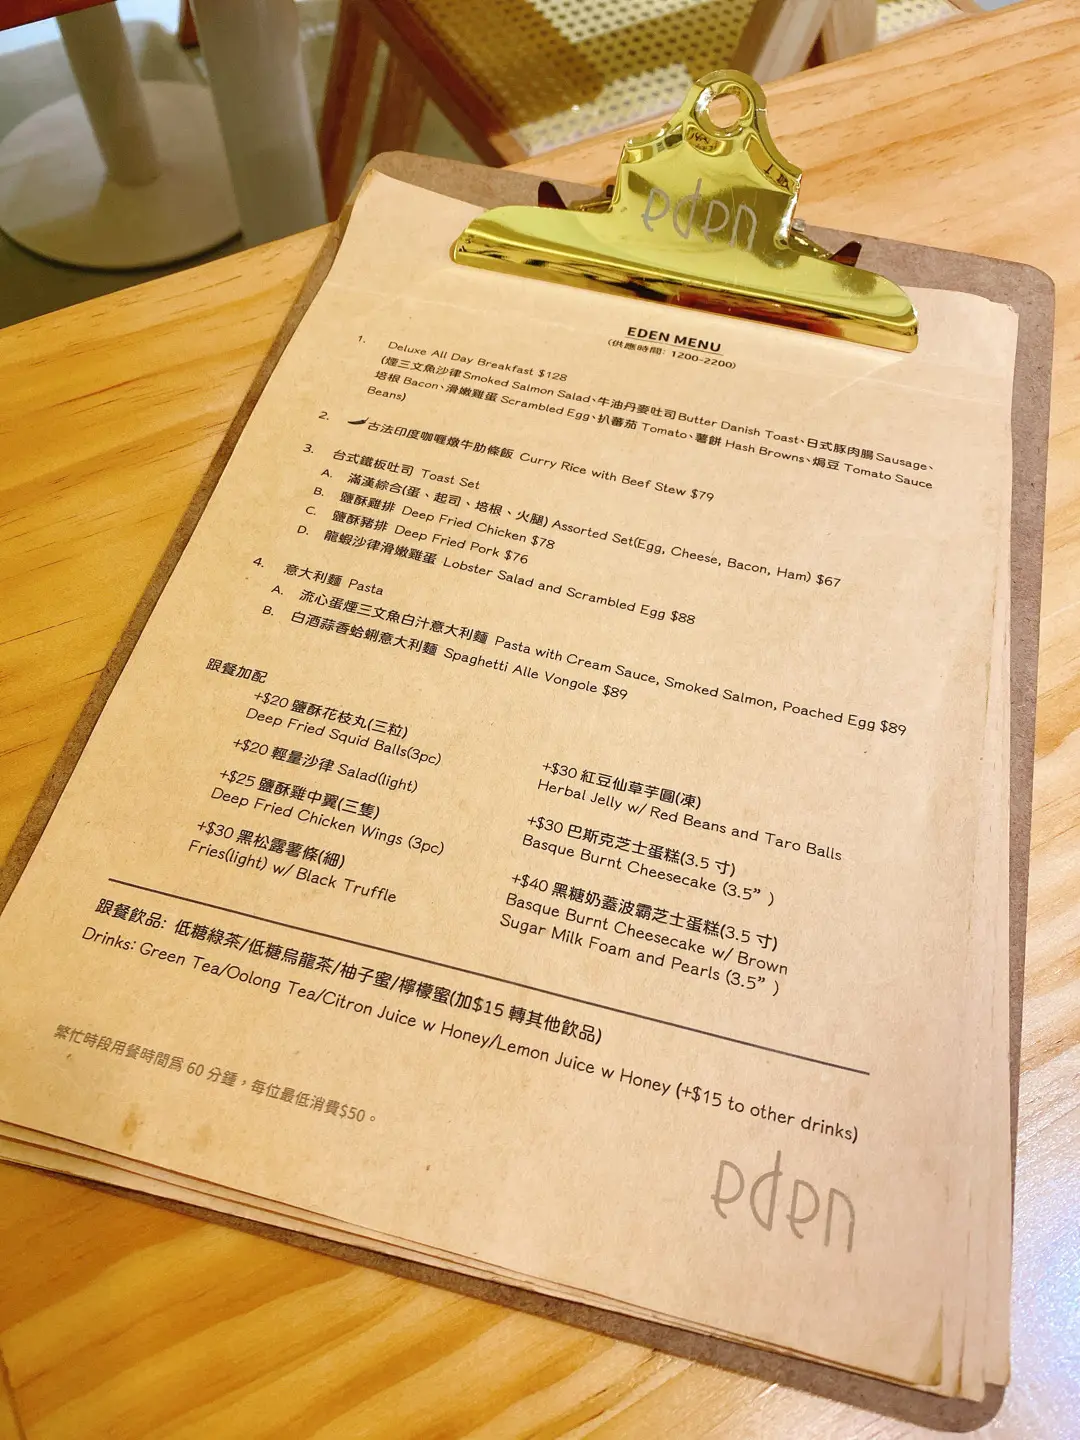 eden
EDEN MENU
(供應時間: 1200-2200)
1. Deluxe All Day Breakfast $128
(煙三文魚沙律Smoked Salmon Salad、牛油丹麥吐司Butter Danish Toast、日式豚肉腸 Sausage、
培根 Bacon、滑嫩雞蛋 Scrambled Egg、扒蕃茄 Tomato、薯餅 Hash Browns、焗豆 Tomato Sauce
Beans)
2. 古法印度咖喱燉牛肋條飯 Curry Rice with Beef Stew $79
3. 台式鐵板吐司 Toast Set
A. 滿漢綜合(蛋、起司、培根、火腿) Assorted Set(Egg, Cheese, Bacon, Ham) $67
B. 鹽酥雞排 Deep Fried Chicken $78
C. 鹽酥豬排 Deep Fried Pork $76
D. 龍蝦沙律滑嫩雞蛋 Lobster Salad and Scrambled Egg $88
4. 意大利麵 Pasta
A. 流心蛋煙三文魚白汁意大利麵 Pasta with Cream Sauce, Smoked Salmon, Poached Egg $89
B. 白酒蒜香蛤蜊意大利麵 Spaghetti Alle Vongole $89
跟餐加配
+$20 鹽酥花枝丸(三粒)
Deep Fried Squid Balls(3pc)
+$20 輕量沙律 Salad(light)
+$25 鹽酥雞中翼(三隻)
Deep Fried Chicken Wings (3pc)
+$30 黑松露薯條(細)
Fries(light) w/ Black Truffle
+$30 紅豆仙草芋圓(凍)
Herbal Jelly w/ Red Beans and Taro Balls
+$30 巴斯克芝士蛋糕(3.5 寸)
Basque Burnt Cheesecake (3.5” )
+$40 黑糖奶蓋波霸芝士蛋糕(3.5 寸)
Basque Burnt Cheesecake w/ Brown
Sugar Milk Foam and Pearls (3.5” )
跟餐飲品: 低糖綠茶/低糖烏龍茶/柚子蜜/檸檬蜜(加$15 轉其他飲品)
Drinks: Green Tea/Oolong Tea/Citron Juice w Honey/Lemon Juice w Honey (+$15 to other drinks)
繁忙時段用餐時間為 60 分鍾，每位最低消費$50。
eden